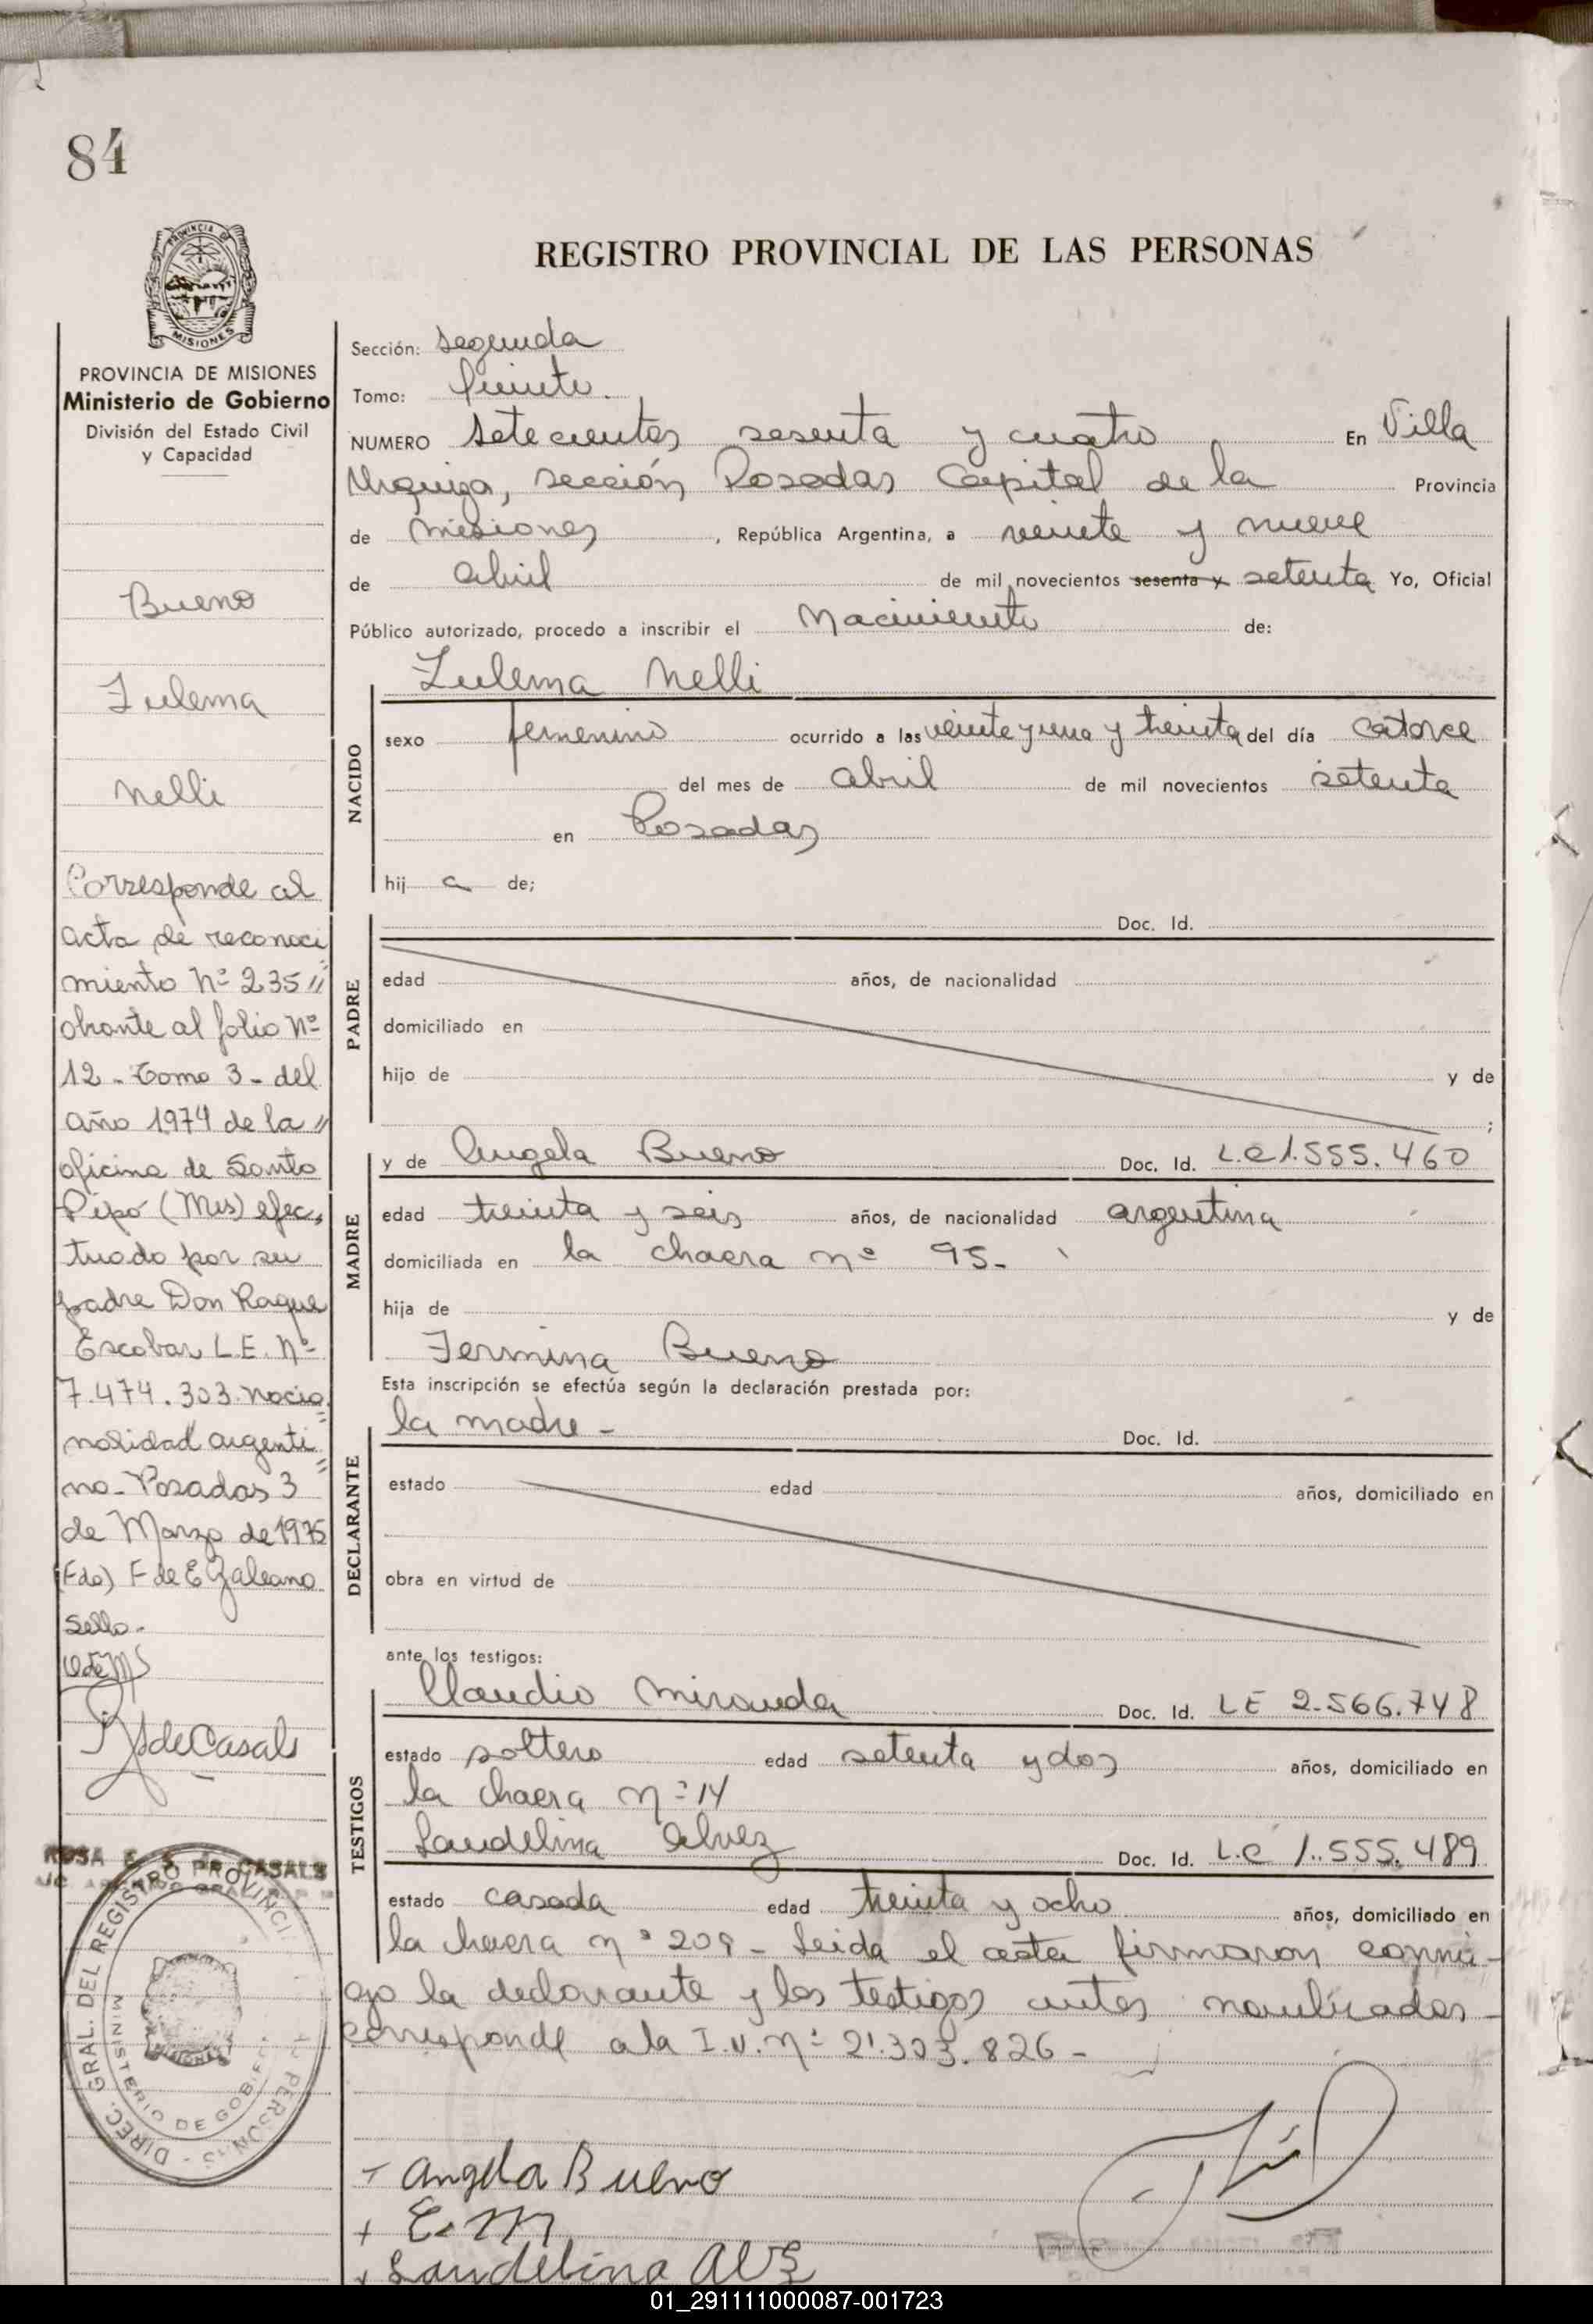 84
REGISTRO PROVINCIAL DE LAS PERSONAS
MISIONES
PROVINCIA DE MISIONES
Ministerio de Gobierno
División del Estado Civil
y Capacidad
Bueno
Zulema
Nelli
Corresponde al
acta de reconoci
miento Nº 235 //
obrante al folio Nº
12 - Tomo 3 - del
año 1974 de la //
oficina de Santo
Pipó (Mis) efec,
tuado por su
padre Don Roque
Escobar L.E. Nº
7.474.303. nacio
nalidad argenti
na - Posadas 3
de Marzo de 1975
(Fdo) F de E Galeano
Sello -
R S de Casals
ROSA E. S. de CASALS
DIREC. GRAL. DEL REGISTRO PROVINCIAL
MINISTERIO DE GOBIERNO
MISIONES
Sección: segunda
Tomo: Quinto.
NUMERO setecientos sesenta y cuatro En Villa
Urquiza, sección Posadas Capital de la Provincia
de Misiones , República Argentina, a veinte y nueve
de abril de mil novecientos sesenta y setenta Yo, Oficial
Público autorizado, procedo a inscribir el Nacimiento de:
Zulema Nelli
NACIDO
sexo femenino ocurrido a las veinte y una y treinta del día catorce
del mes de abril de mil novecientos setenta
en Posadas
hij a de;
PADRE
Doc. Id.
edad años, de nacionalidad
domiciliado en
hijo de y de
;
MADRE
y de Angela Bueno Doc. Id. L.C 1.555.460
edad treinta y seis años, de nacionalidad argentina
domiciliada en la chacra nº 95-
hija de y de
Fermina Bueno
Esta inscripción se efectúa según la declaración prestada por:
DECLARANTE
la madre - Doc. Id.
estado edad años, domiciliado en
obra en virtud de
ante los testigos:
TESTIGOS
Claudio Miranda Doc. Id. LE 2.566.748
estado soltero edad setenta y dos años, domiciliado en
la chacra nº 14
Laudelina Alvez Doc. Id. L.C 1.555.489
estado casada edad treinta y ocho años, domiciliado en
la chacra nº 209 - Leida el acta firmaron conmi-
go la declarante y los testigos antes nombrados -
corresponde a la I.N. nº 21.323.826 -
Angela Bueno
E. M
Laudelina
01_291111000087-001723